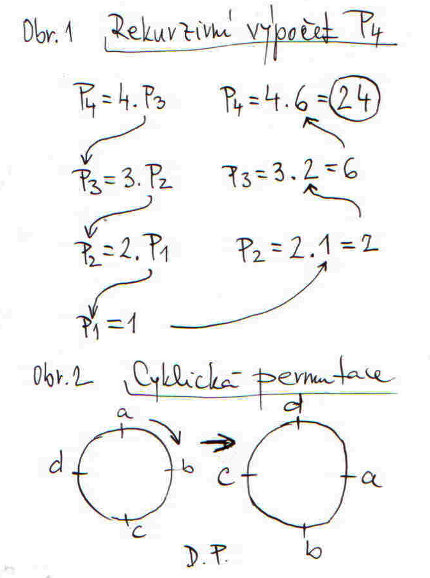 Obr.1 Rekurzivní výpočet P₄
P₄=4.P₃ P₄=4.6=24
P₃=3.P₂ P₃=3.2=6
P₂=2.P₁ P₂=2.1=2
P₁=1
Obr.2 Cyklická permutace
a d
d b c a
c b
D.P.